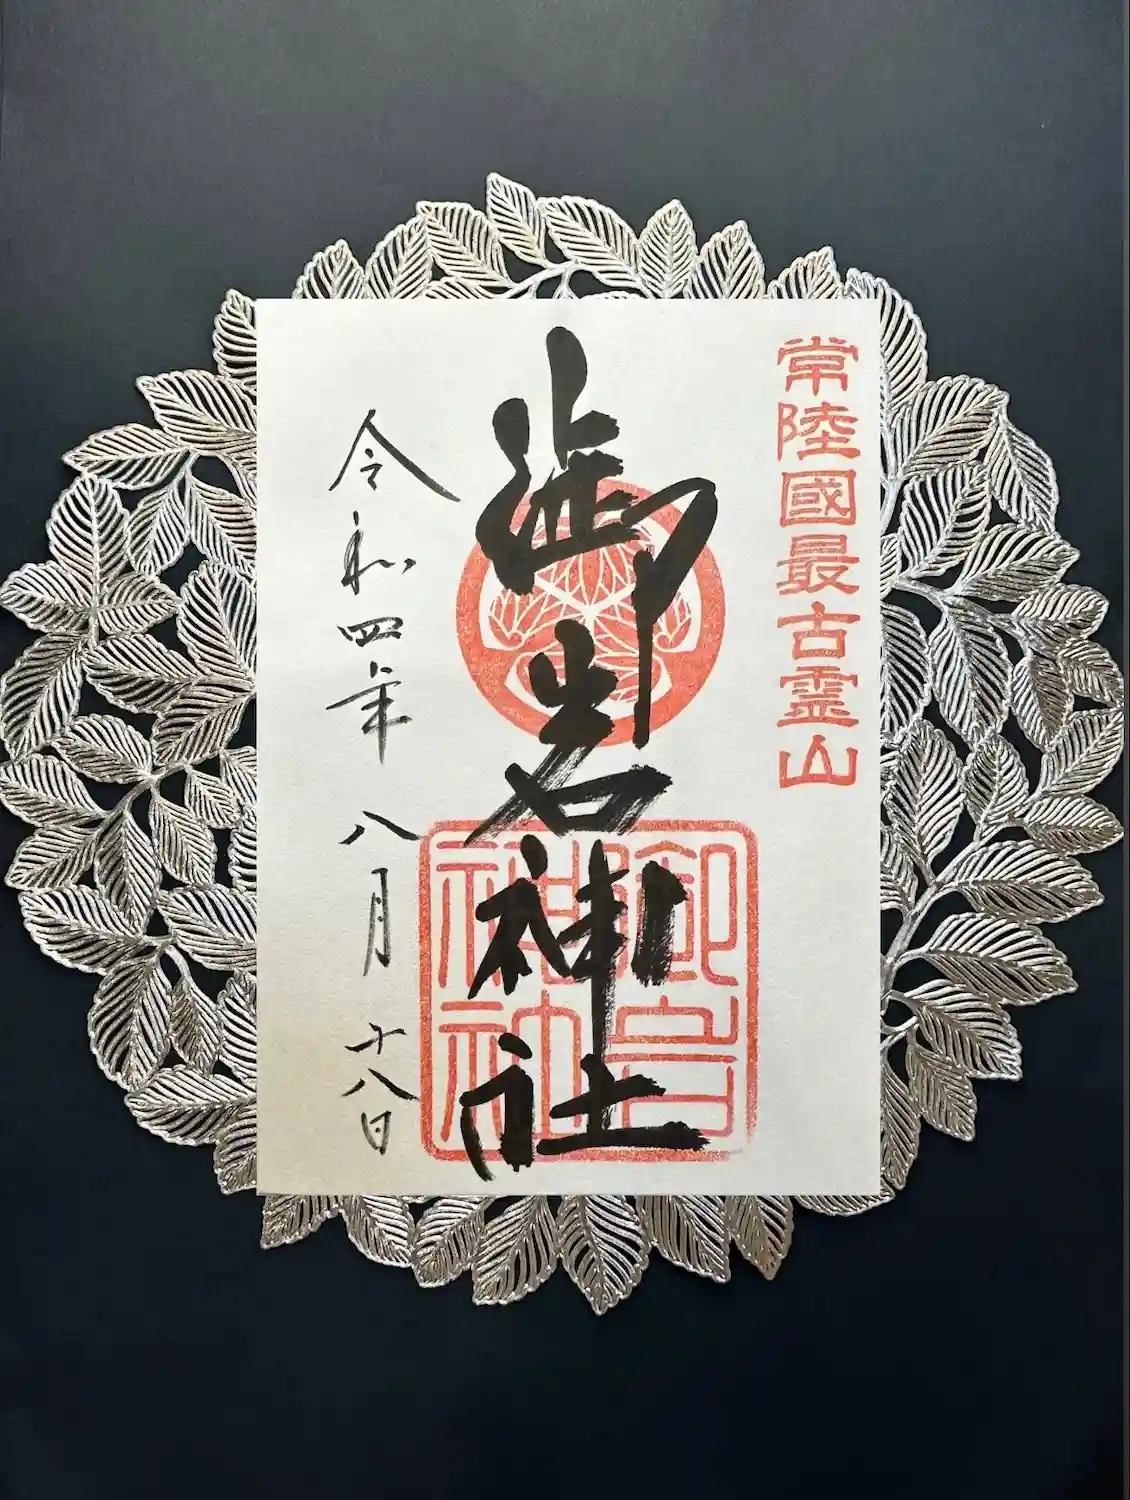 常陸國最古霊山
御岩神社
御岩神社
令和四年八月十八日